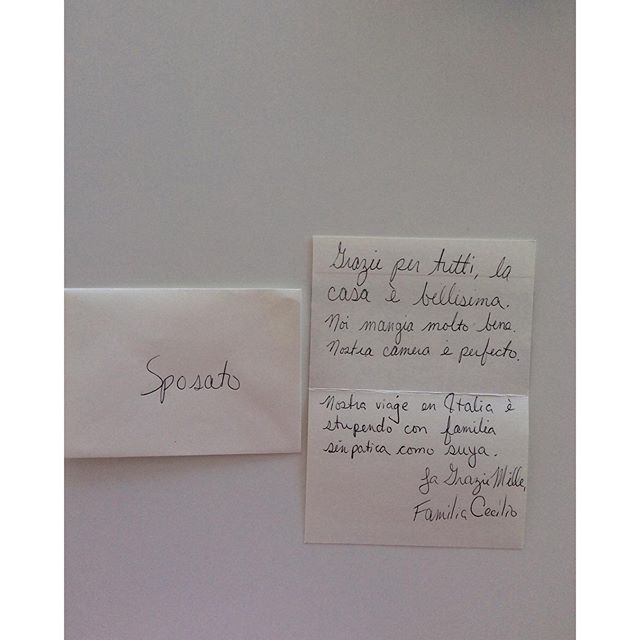 Sposato
Grazie per tutti, la
casa è bellisima.
Noi mangia molto bene.
Nostra camera è perfecto.
Nostra viage en Italia è
stupendo con familia
sinpatica como suya.
Grazie Mille,
Familia Cecilio